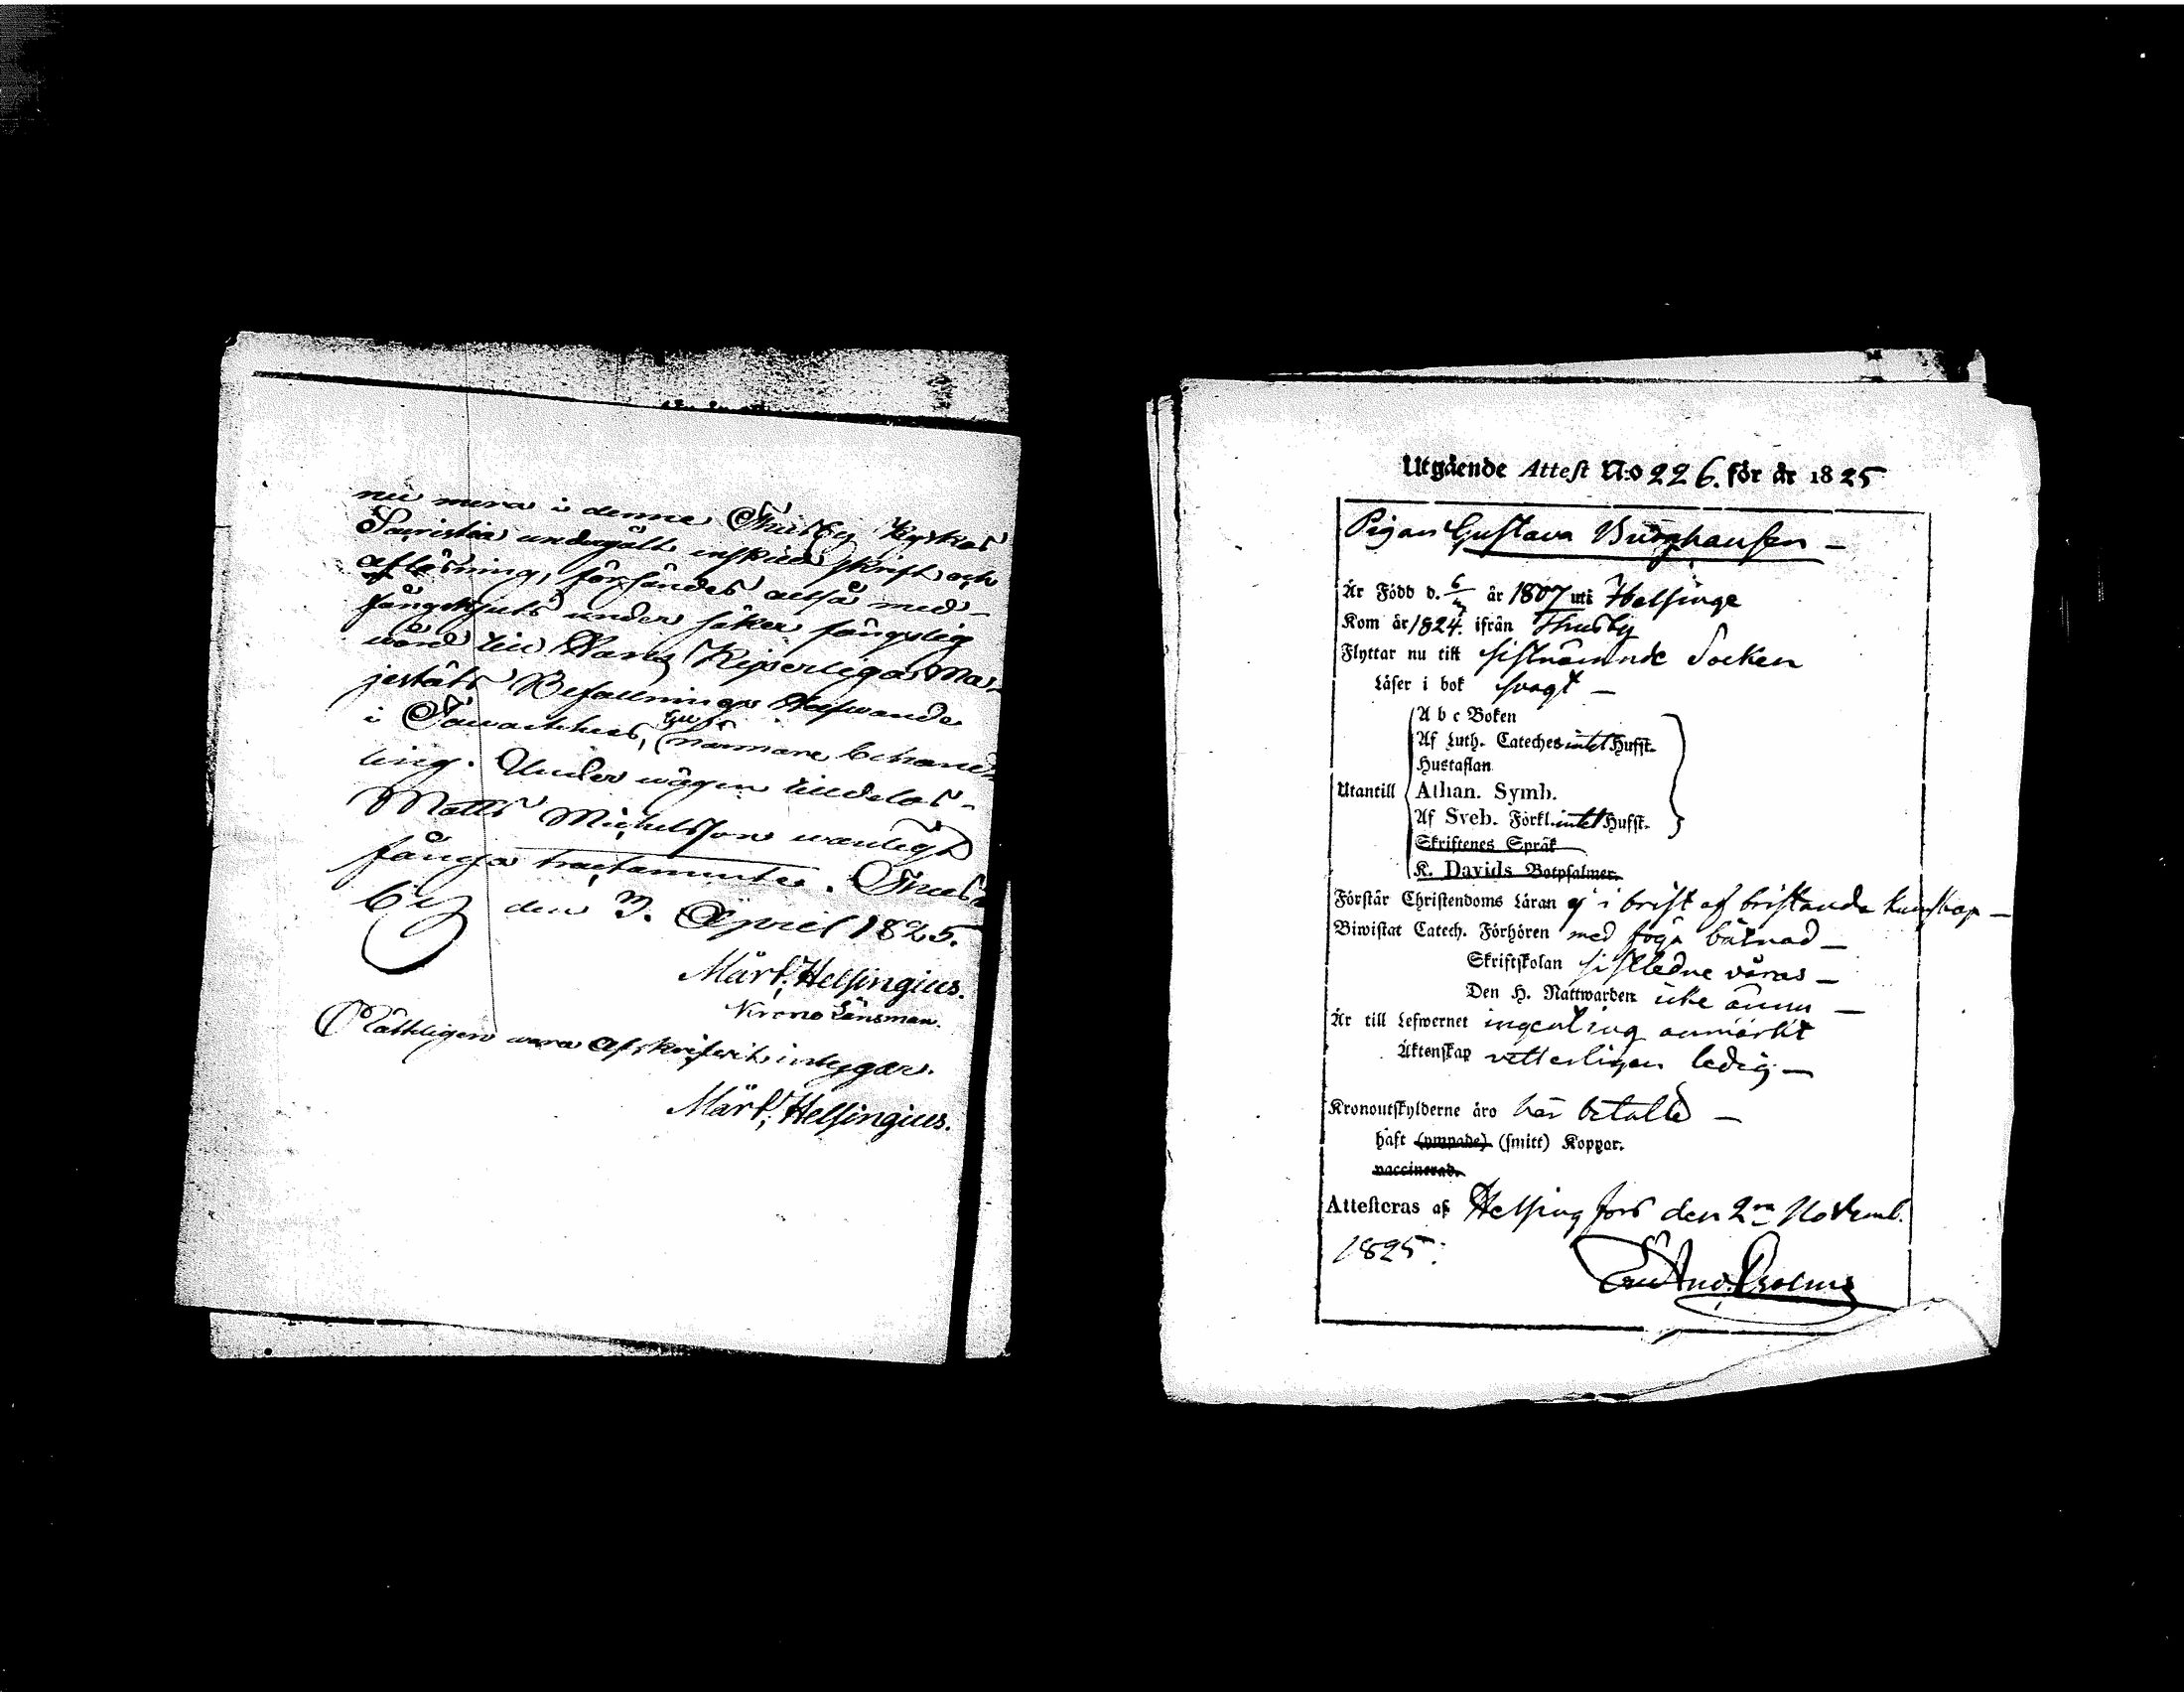 nu mera i denne Thusby Kyrkas
Sacristia undergått enskild skrift och
aflösning, försändes altså med
fångskjuts under säker fångslig
vård till Hans Kejserliga Ma-
jestäts Befallningshafwande
i Tawastehus, för närmare behand-
ling. Under wägen tilldelas
Matts Michelsson wanligt
fånga tractamente. Thus-
by den 3. April 1825.
Märt: Helsingius.
Krono Länsman.
Rätteligen vara afskrifvit, intygar.
Märt: Helsingius.
Utgående Attest N:o 226. för år 1825
Pigan Gustava Burghausen –
Är Född d. 6/ år 1807 uti Helsinge
Kom år 1824. ifrån Thusby
Flyttar nu till sistnämnde Socken
Läser i bok svagt –
A b c Boken
Af Luth. Cateches intet Hufst.
Hustaflan
Utantill Athan. Symb.
Af Sveb. Förkl. intet Hufst.
Skriftenes Språk
K. Davids Botpsalmer.
Förstår Christendoms Läran ej i brist af bristande kunskap –
Biwistat Catech. Förhören med föga båtnad –
Skriftskolan sistledne våras –
Den H. Nattwarden icke ännu –
Är till Lefwernet ingenting anmärkt
Äktenskap vetterligen ledig –
Kronoutskylderne äro här betalte –
haft (ympade) (smitt) Koppor.
vaccinerad.
Attesteras af Helsingfors den 2:n Novemb.
1825.